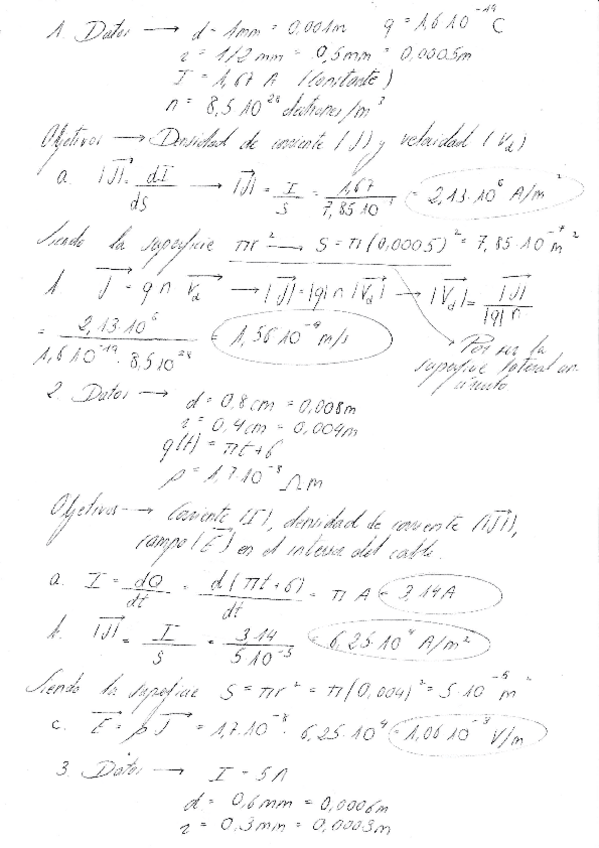 1. Datos → d = 1mm = 0,001m q = 1,6·10⁻¹⁹ C
r = 1/2 mm = 0,5mm = 0,0005m
I = 1,67 A (Constante)
n = 8,5·10²⁸ electrones/m³
Objetivos → Densidad de corriente |J| y velocidad (Vd)
a. |J| = dI/dS → |J| = I/S = 1,67/7,85·10⁻⁷ = 2,13·10⁶ A/m²
Siendo la superficie πr² → S = π(0,0005)² = 7,85·10⁻⁷ m²
b. J = q n Vd → |J| = |q| n |Vd| → |Vd| = |J|/|q| n
= 2,13·10⁶/1,6·10⁻¹⁹·8,5·10²⁸ = 1,56·10⁻⁴ m/s
Por ser la
superficie lateral un
círculo
2. Datos → d = 0,8cm = 0,008m
r = 0,4cm = 0,004m
q(t) = πt+6
ρ = 1,7·10⁻⁸ Ωm
Objetivos → Corriente (I), densidad de corriente |J|,
campo (E) en el interior del cable.
a. I = dQ/dt = d(πt+6)/dt = π A = 3,14A
b. |J| = I/S = 3,14/5·10⁻⁵ = 6,25·10⁴ A/m²
Siendo la superficie S = πr² = π(0,004)² = 5·10⁻⁵ m²
c. E = ρJ = 1,7·10⁻⁸ · 6,25·10⁴ = 1,06·10⁻³ V/m
3. Datos → I = 5A
d = 0,6mm = 0,0006m
r = 0,3mm = 0,0003m